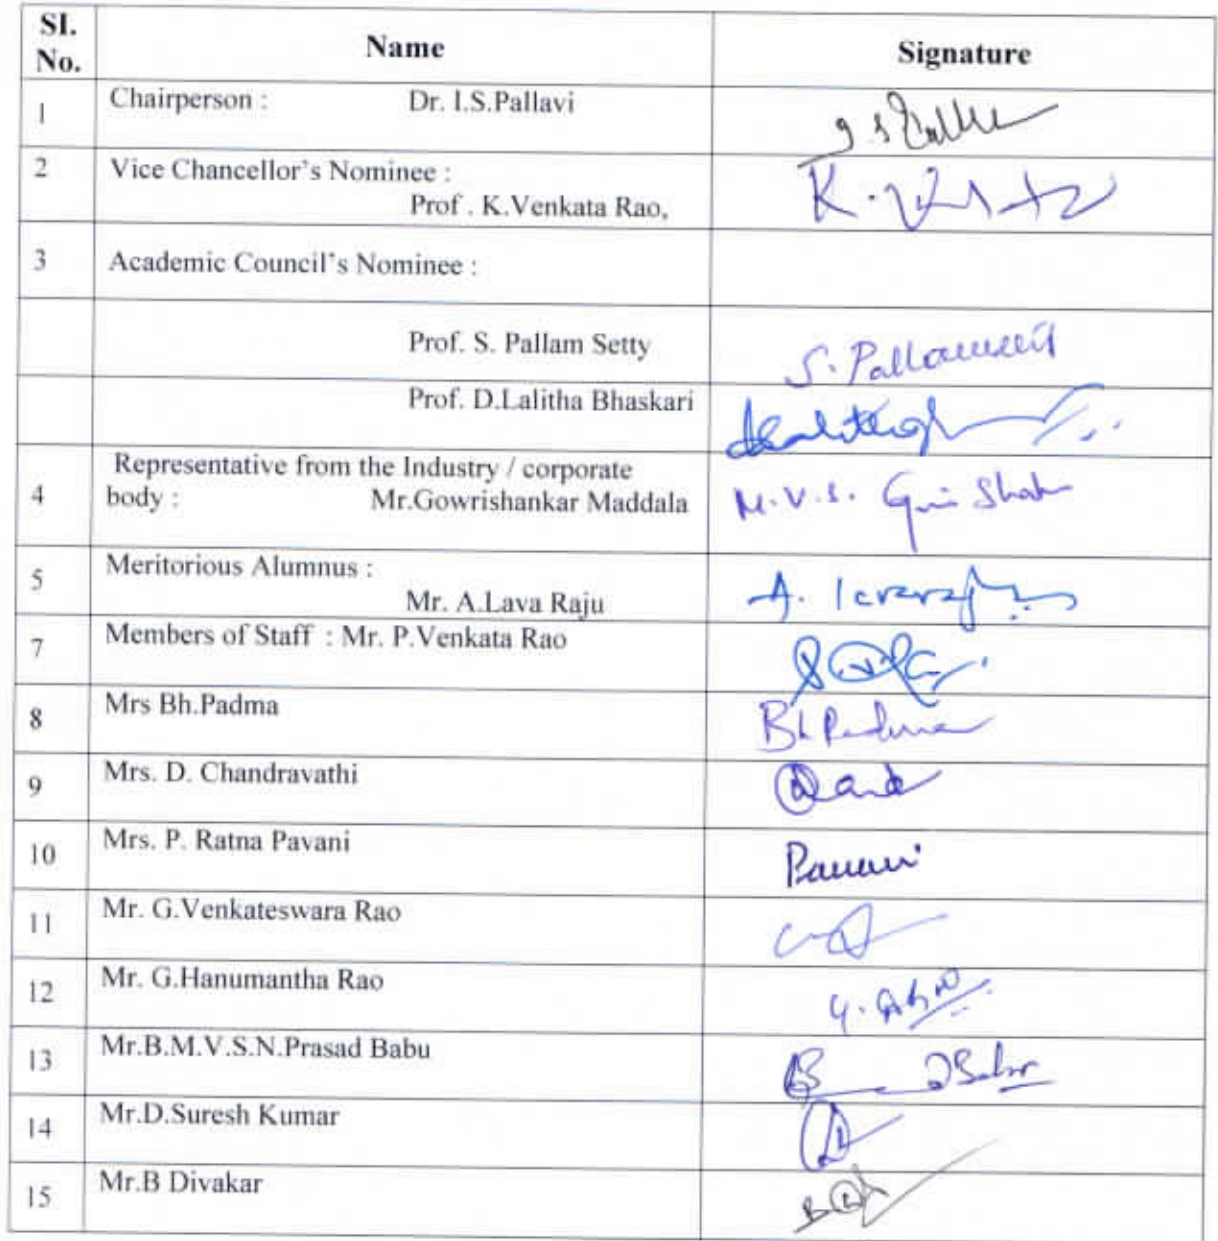 Sl. No. Name Signature
1 Chairperson : Dr. I.S.Pallavi
2 Vice Chancellor's Nominee :
Prof . K.Venkata Rao, K.
3 Academic Council's Nominee :
Prof. S. Pallam Setty S.
Prof. D.Lalitha Bhaskari
4 Representative from the Industry / corporate
body : Mr.Gowrishankar Maddala M.V.S.
5 Meritorious Alumnus :
Mr. A.Lava Raju A.
7 Members of Staff : Mr. P.Venkata Rao
8 Mrs Bh.Padma Bh Padma
9 Mrs. D. Chandravathi
10 Mrs. P. Ratna Pavani Pavani
11 Mr. G.Venkateswara Rao
12 Mr. G.Hanumantha Rao
13 Mr.B.M.V.S.N.Prasad Babu
14 Mr.D.Suresh Kumar
15 Mr.B Divakar